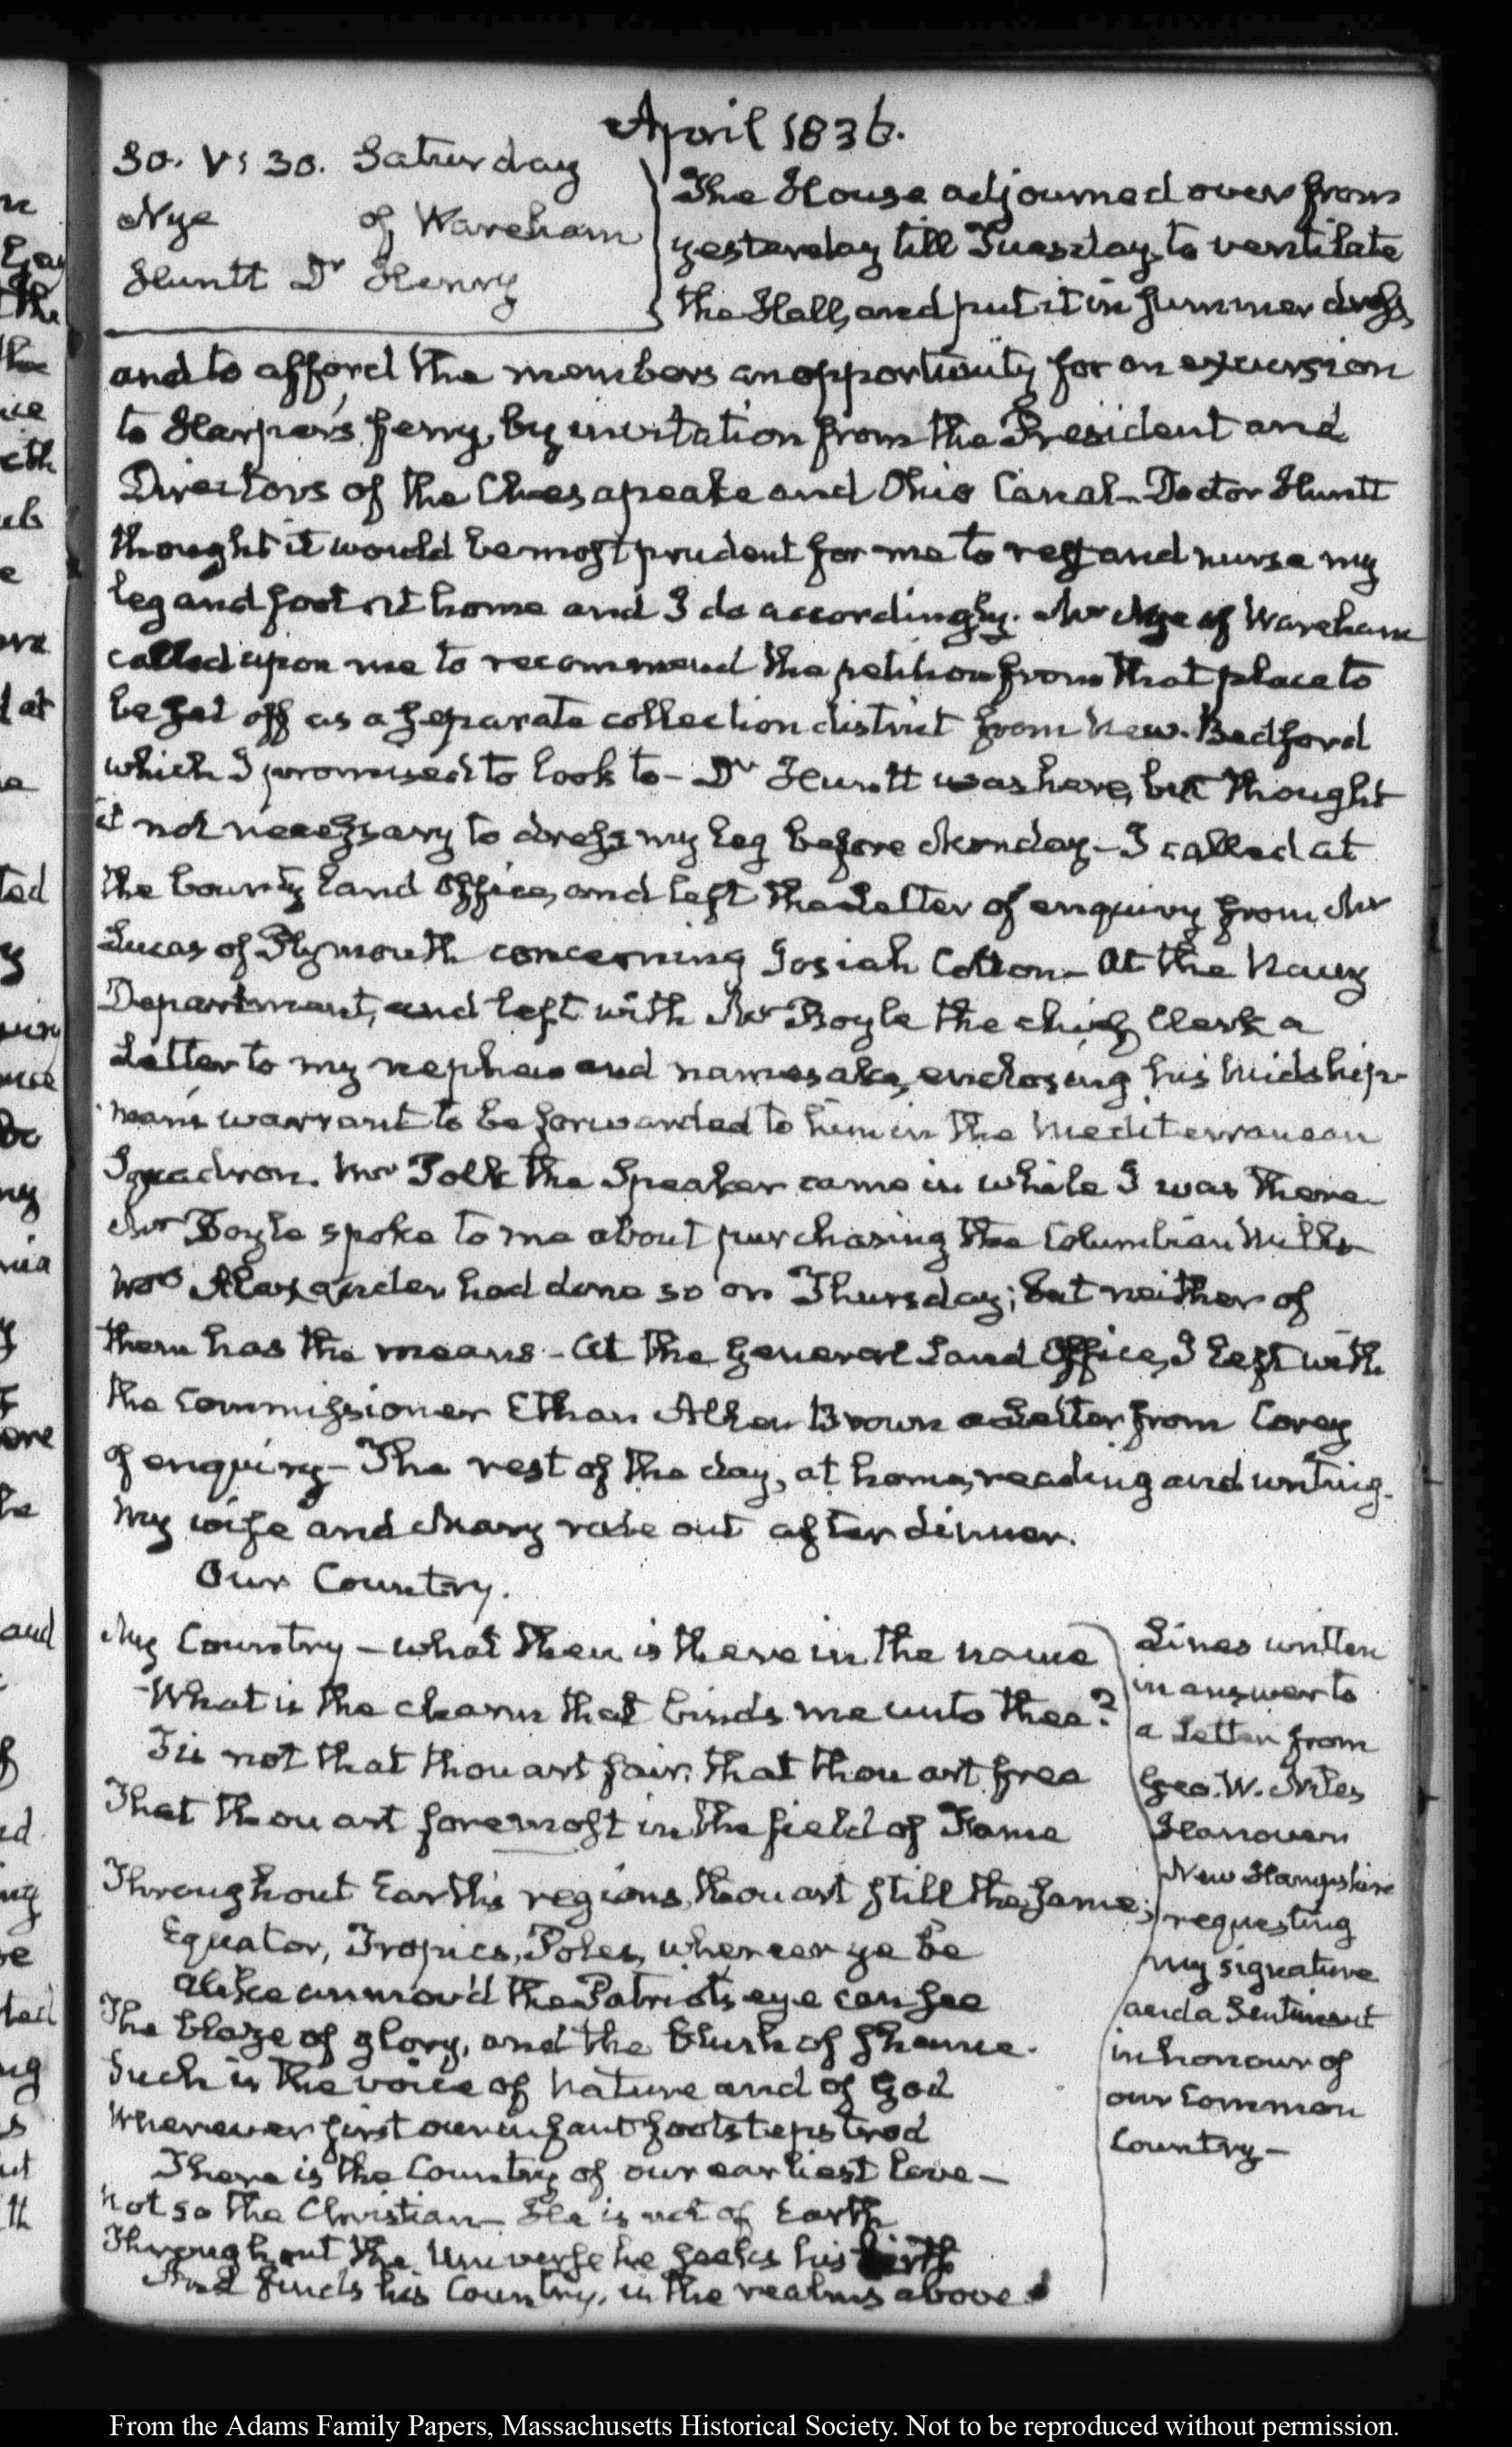 April 1836.
30. V: 30. Saturday
Nye of Wareham
Huntt Dr Henry
The House adjourned over from
yesterday till Tuesday, to ventilate
the Hall, and put it in summer dress,
and to afford the members an opportunity for an excursion
to Harper's ferry, by invitation from the President and
Directors of the Chesapeake and Ohio Canal_ Doctor Huntt
thought it would be most prudent for me to rest and nurse my
leg and foot at home and I do accordingly. Mr Nye of Wareham
called upon me to recommend the petition from that place to
be set off as a separate collection district from New-Bedford
which I promised to look to- Dr Huntt was here, but thought
it not necessary to dress my leg before Monday- I called at
the bounty land Office, and left the Letter of enquiry from Mr
Lucas of Plymouth concerning Josiah Cotton- At the Navy
Department, and left with Mr Boyle the chief Clerk a
Letter to my nephew and namesake, enclosing his Midship-
man's warrant to be forwarded to him in the Mediterranean
Squadron. Mr Polk the Speaker came in while I was there_
Mr Boyle spoke to me about purchasing the Columbian Mills_
Mrs Alexander had done so on Thursday; but neither of
them has the means- At the General Land Office, I left with
the Commissioner Ethan Allen Brown a Letter from Corey
of enquiry- The rest of the day, at home, reading and writing.
My wife and Mary rode out after dinner.
Our Country.
My Country - what then is there in the name
What is the charm that binds me unto thee?
Tis not that thou art fair; that thou art free
That thou art foremost in the field of Fame
Throughout Earth's regions, thou art still the same;
Equator, Tropics, Poles, where'er ye be
Alike unmov'd the Patriot's eye can see
The blaze of glory, and the blush of shame.
Such is the voice of Nature and of God
Wherever first our infant footsteps trod
There is the Country of our earliest love-
Not so the Christian_ He is not of Earth
Throughout the Universe he seeks his birth
And finds his Country, in the realms above.
Lines written
in answer to
a Letter from
Geo. W. Niles
Hanover
New Hampshire
requesting
my signature
and a Sentiment
in honour of
our Common
Country-
From the Adams Family Papers, Massachusetts Historical Society. Not to be reproduced without permission.